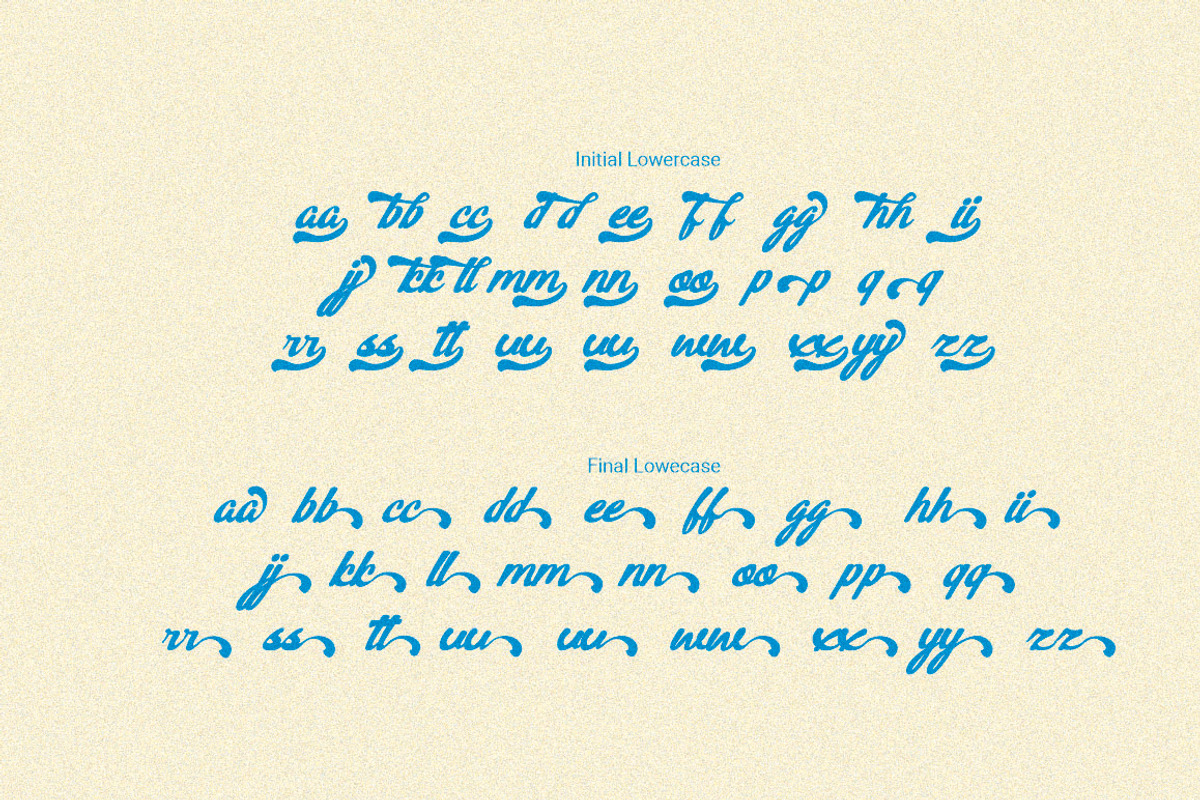 Initial Lowercase
aa bb cc dd ee ff gg hh ii
jj kk ll mm nn oo pp qq
rr ss tt uu uu ww xx yy zz
Final Lowecase
aa bb cc dd ee ff gg hh ii
jj kk ll mm nn oo pp qq
rr ss tt uu uu ww xx yy zz